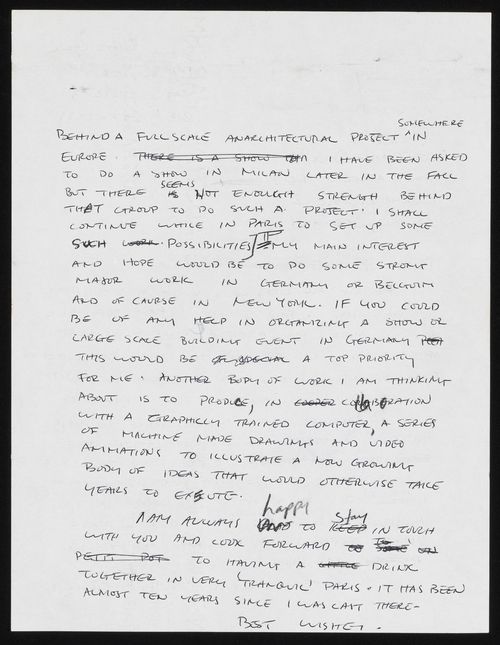 SOMEWHERE
BEHIND A FULLSCALE ANARCHITECTURAL PROJECT ^ IN
EUROPE. THERE IS A SHOW I HAVE BEEN ASKED
TO DO A SHOW IN MILAN LATER IN THE FALL
BUT THERE SEEMS NOT ENOUGH STRENGTH BEHIND
THAT GROUP TO DO SUCH A PROJECT. I SHALL
CONTINUE WHILE IN PARIS TO SET UP SOME
SUCH WORK. POSSIBILITIES MY MAIN INTEREST
AND HOPE WOULD BE TO DO SOME STRONG
MAJOR WORK IN GERMANY OR BELGIUM
AND OF CAURSE IN NEW YORK. IF YOU COULD
BE OF ANY HELP IN ORGANIZING A SHOW OR
LARGE SCALE BUILDING EVENT IN GERMANY
THIS WOULD BE A TOP PRIORITY
FOR ME. ANOTHER BODY OF WORK I AM THINKING
ABOUT IS TO PRODUCE, IN COLLABORATION
WITH A GRAPHICLY TRAINED COMPUTER, A SERIES
OF MACHINE MADE DRAWINGS AND VIDEO
ANIMATIONS TO ILLUSTRATE A NOW GROWING
BODY OF IDEAS THAT WOULD OTHERWISE TAKE
YEARS TO EXECUTE.
I AM ALWAYS happy TO KEEP stay IN TOUCH
WITH YOU AND LOOK FORWARD TO SOME UN
PETIT POT TO HAVING A LITTLE DRINK
TOGETHER IN VERY 'TRANQUIL' PARIS. IT HAS BEEN
ALMOST TEN YEARS SINCE I WAS LAST THERE-
BEST WISHES.